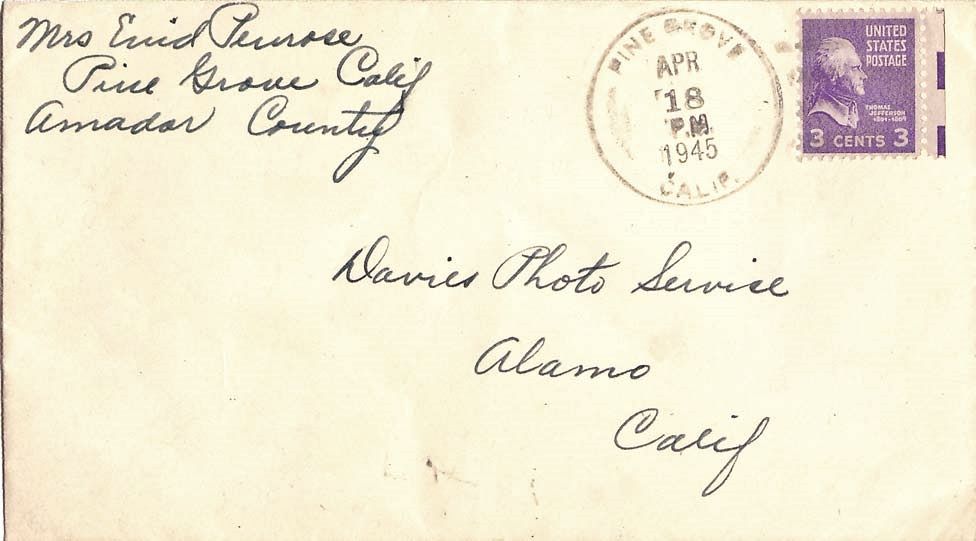 Mrs Enid Penrose
Pine Grove Calif
Amador County
PINE GROVE
APR
18
P.M.
1945
CALIF.
UNITED
STATES
POSTAGE
THOMAS
JEFFERSON
1801-1809
3 CENTS 3
Davies Photo Service
Alamo
Calif